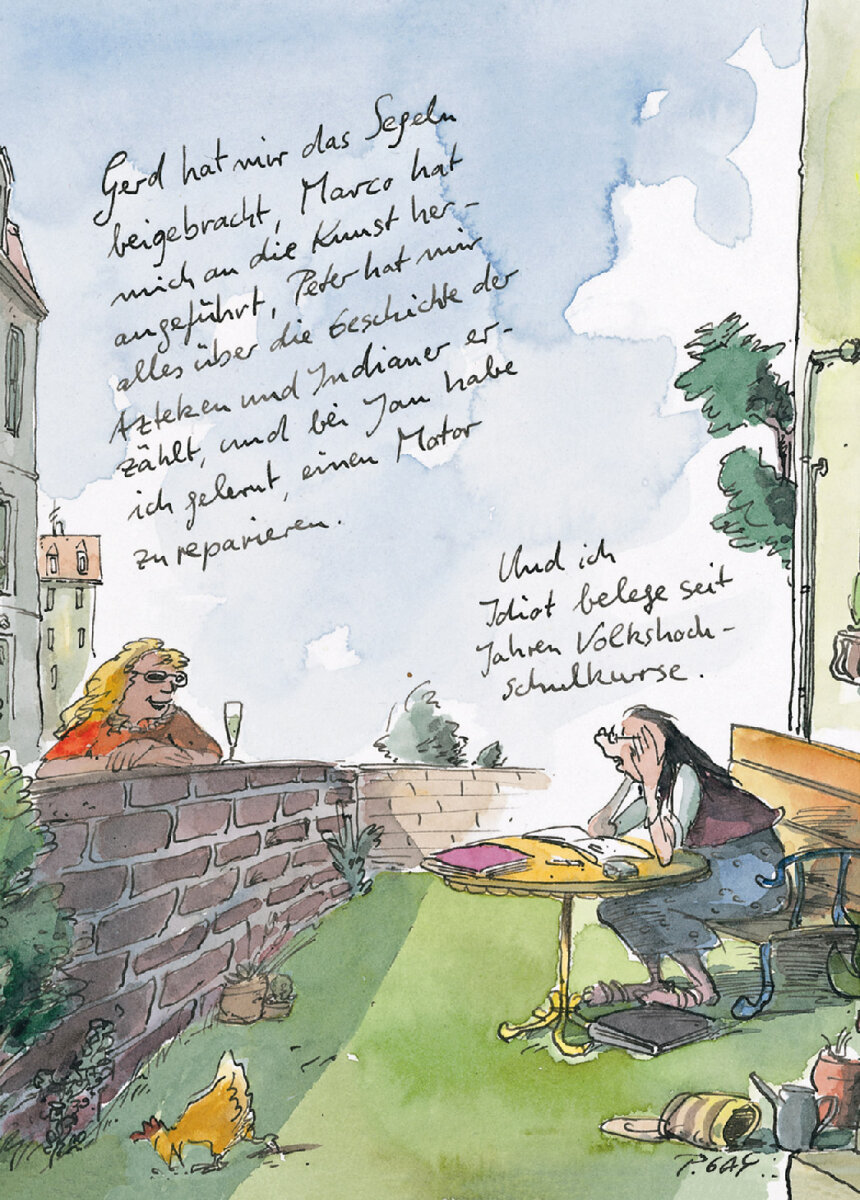 Gerd hat mir das Segeln
beigebracht, Marco hat
mich an die Kunst her-
angeführt, Peter hat mir
alles über die Geschichte der
Azteken und Indianer er-
zählt, und bei Jan habe
ich gelernt, einen Motor
zu reparieren.
Und ich
Idiot belege seit
Jahren Volkshoch-
schulkurse.
P. GAY.